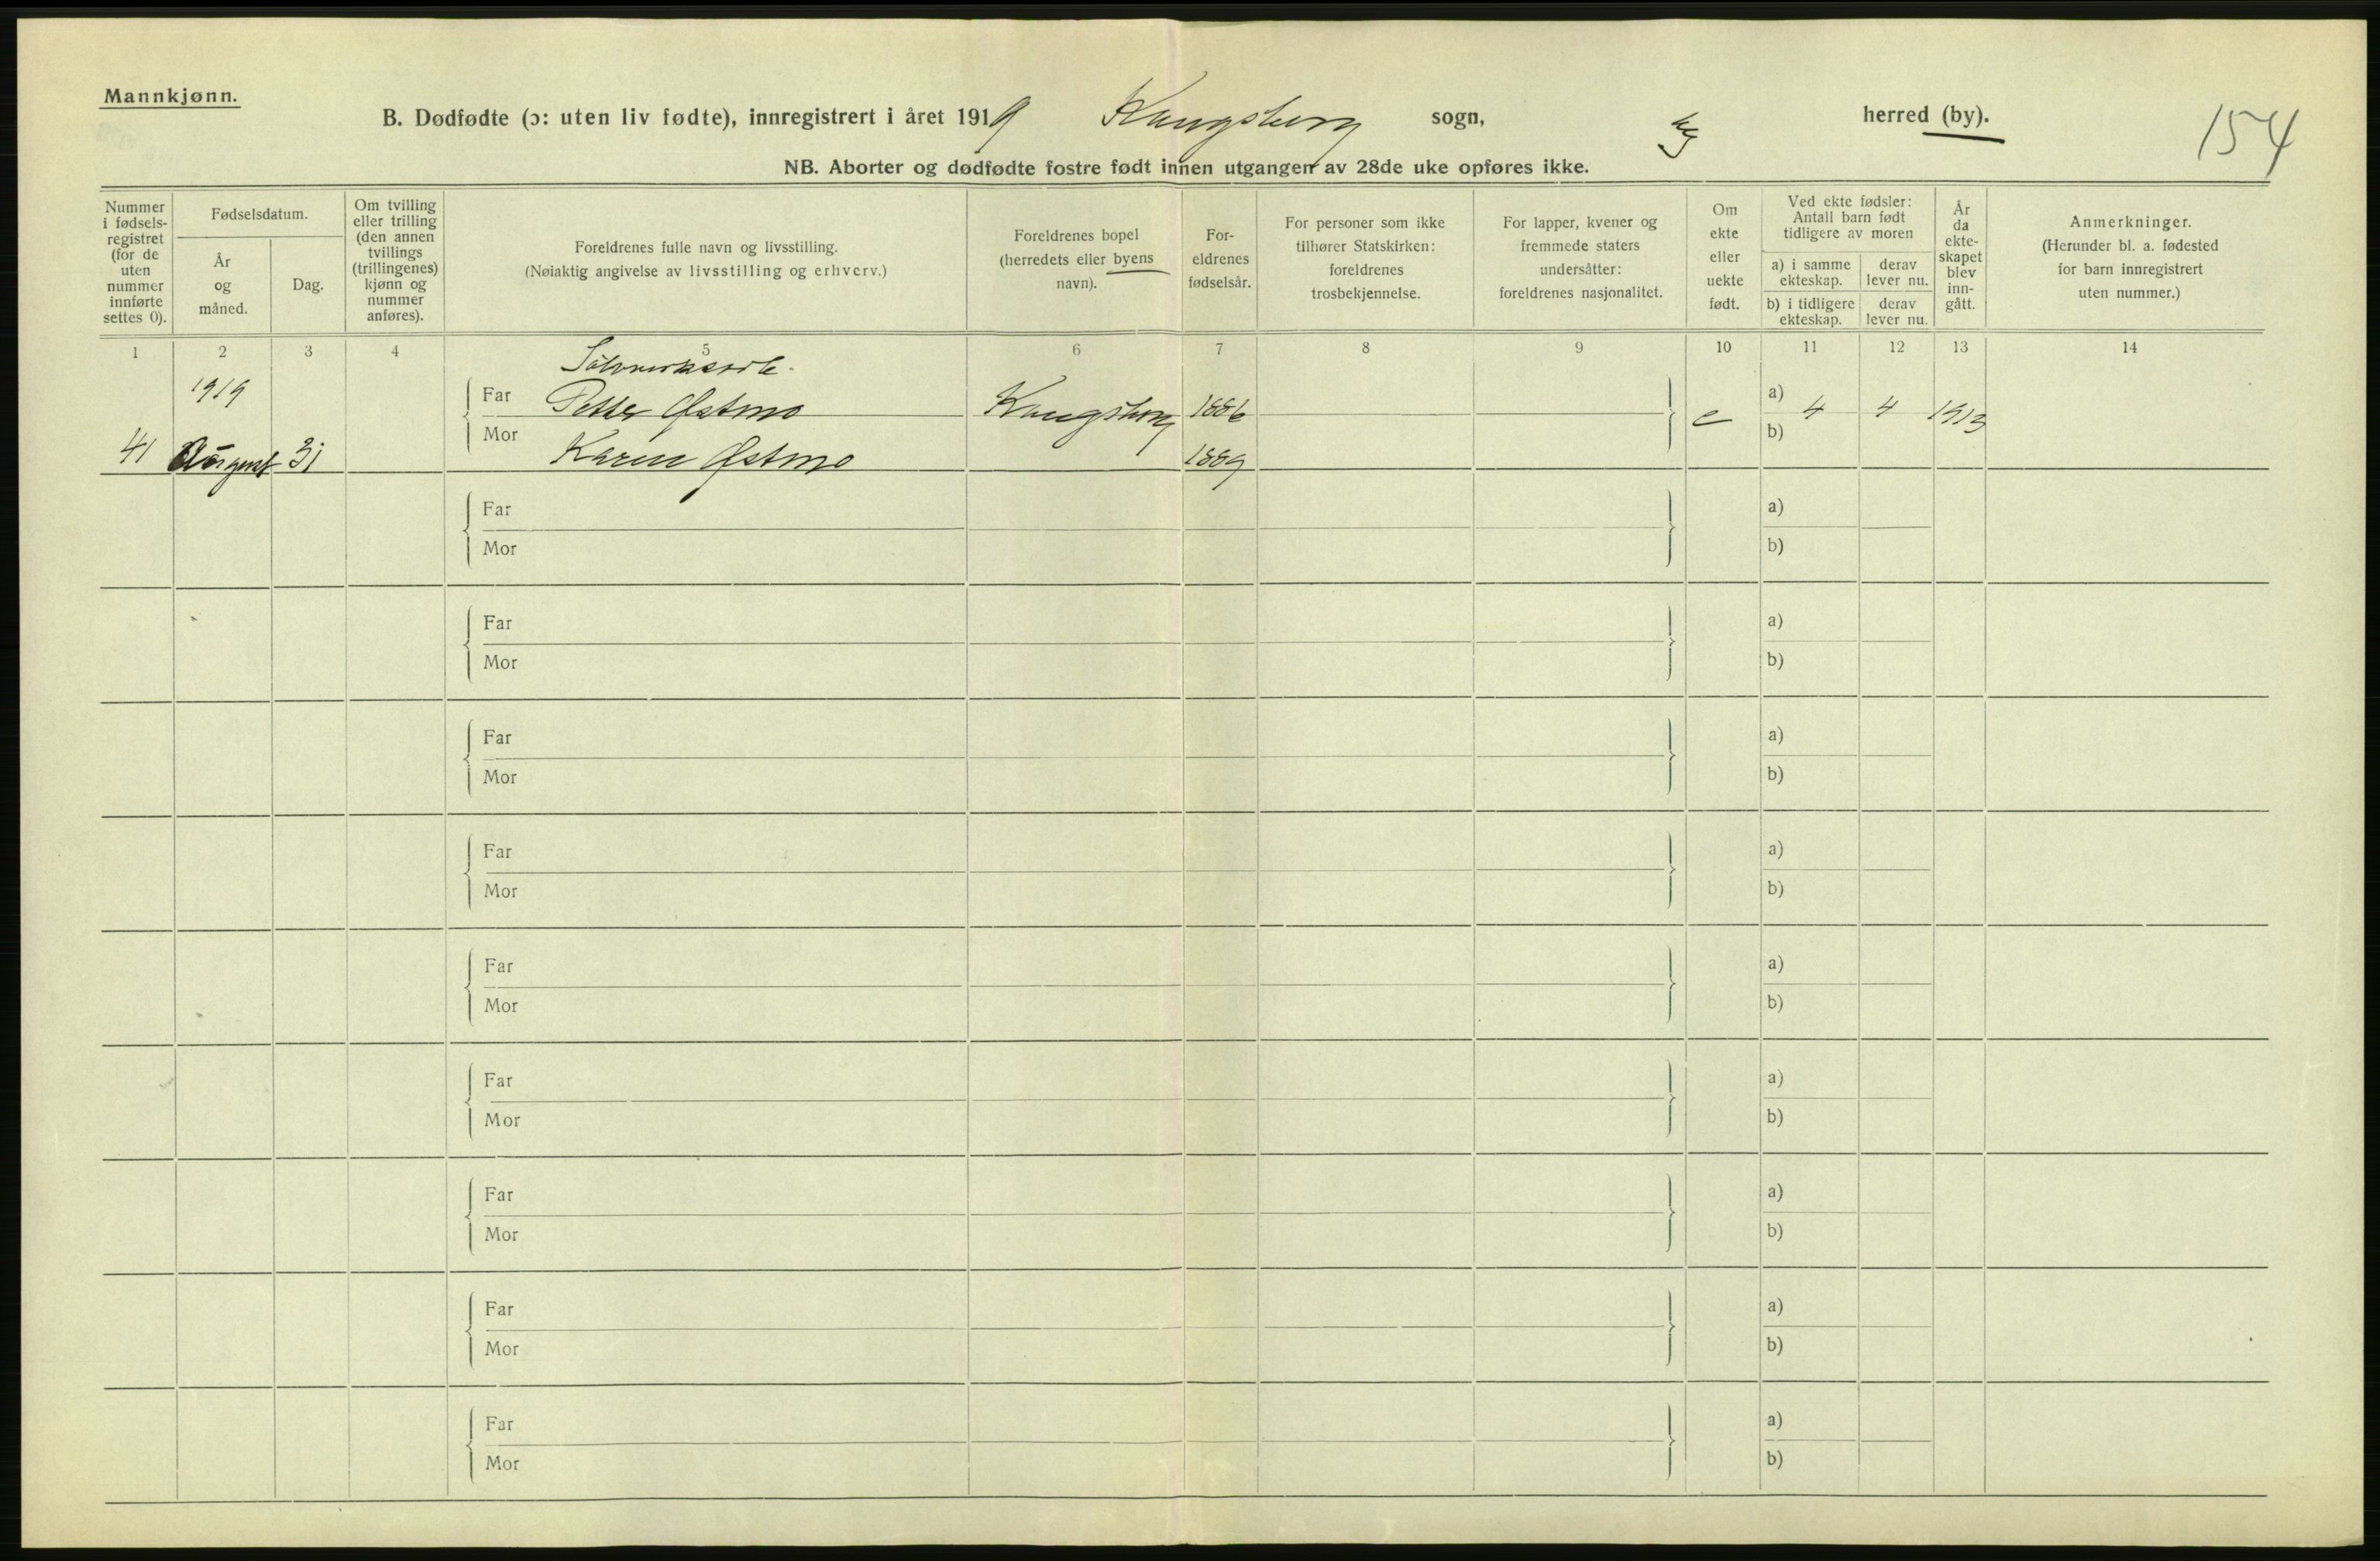 Mannkjønn.
B. Dødfødte (ɔ: uten liv fødte), innregistrert i året 1919 Kongsberg sogn, by herred (by).
154
NB. Aborter og dødfødte fostre født innen utgangen av 28de uke opføres ikke.
Nummer i fødsels- registret (for de uten nummer innførte settes 0).
Fødselsdatum.
År og måned.
Dag.
Om tvilling eller trilling (den annen tvillings (trillingenes) kjønn og nummer anføres).
Foreldrenes fulle navn og livsstilling.
(Nøiaktig angivelse av livsstilling og erhverv.)
Foreldrenes bopel (herredets eller byens navn).
For- eldrenes fødselsår.
For personer som ikke tilhører Statskirken: foreldrenes trosbekjennelse.
For lapper, kvener og fremmede staters undersåtter: foreldrenes nasjonalitet.
Om ekte eller uekte født.
Ved ekte fødsler: Antall barn født tidligere av moren
a) i samme ekteskap.
derav lever nu.
b) i tidligere ekteskap.
derav lever nu.
År da ekte- skapet blev inn- gått.
Anmerkninger.
(Herunder bl. a. fødested for barn innregistrert uten nummer.)
1 2 3 4 5 6 7 8 9 10 11 12 13 14
Sølvverksarb.
1919 Far Petter Østmo Kongsberg 1886 e a) 4 4 1913
Mor b)
41 August 31 Karen Østmo 1889
Far a)
Mor b)
Far a)
Mor b)
Far a)
Mor b)
Far a)
Mor b)
Far a)
Mor b)
Far a)
Mor b)
Far a)
Mor b)
Far a)
Mor b)
Far a)
Mor b)